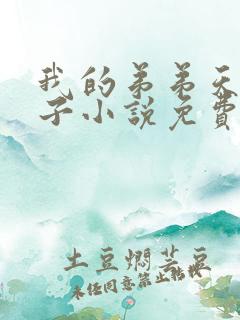 我的弟弟天
子小說免費
土豆燜芸豆
未经同意禁止转载